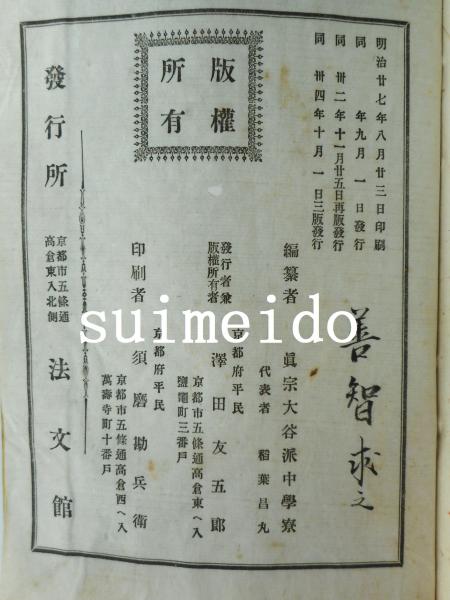 明治廿七年八月廿三日印刷
同 年九月一日發行
同 卅二年十一月廿五日再版發行
同 卅四年十月一日三版發行
版權
所有
善智求之
編纂者 眞宗大谷派中學寮
代表者 稻葉昌丸
京都府平民
發行者兼
版權所有者
澤田友五郎
京都市五條通高倉東ヘ入
鹽竈町三番戶
京都府平民
印刷者 須磨勘兵衛
京都市五條通高倉西ヘ入
萬壽寺町十番戶
發行所
京都市五條通
高倉東入北側
法文館
suimeido